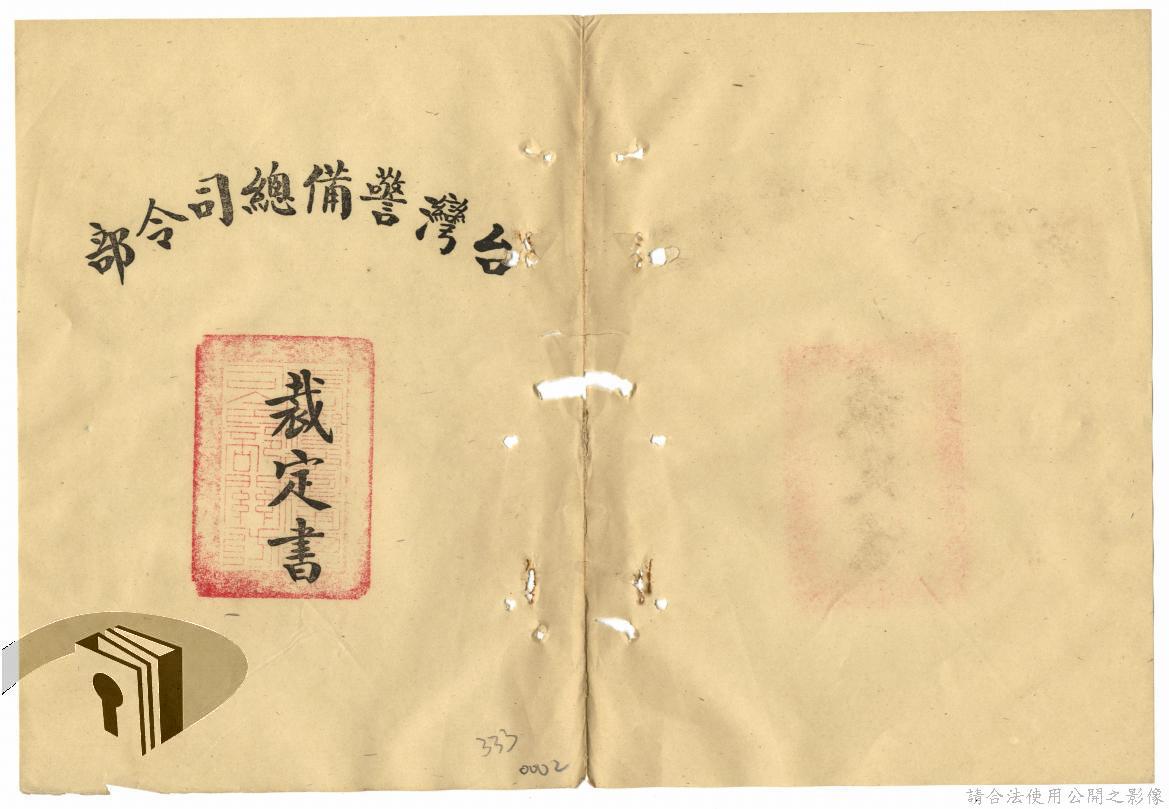 台灣警備總司令部
裁定書
333
0002
請合法使用公開之影像